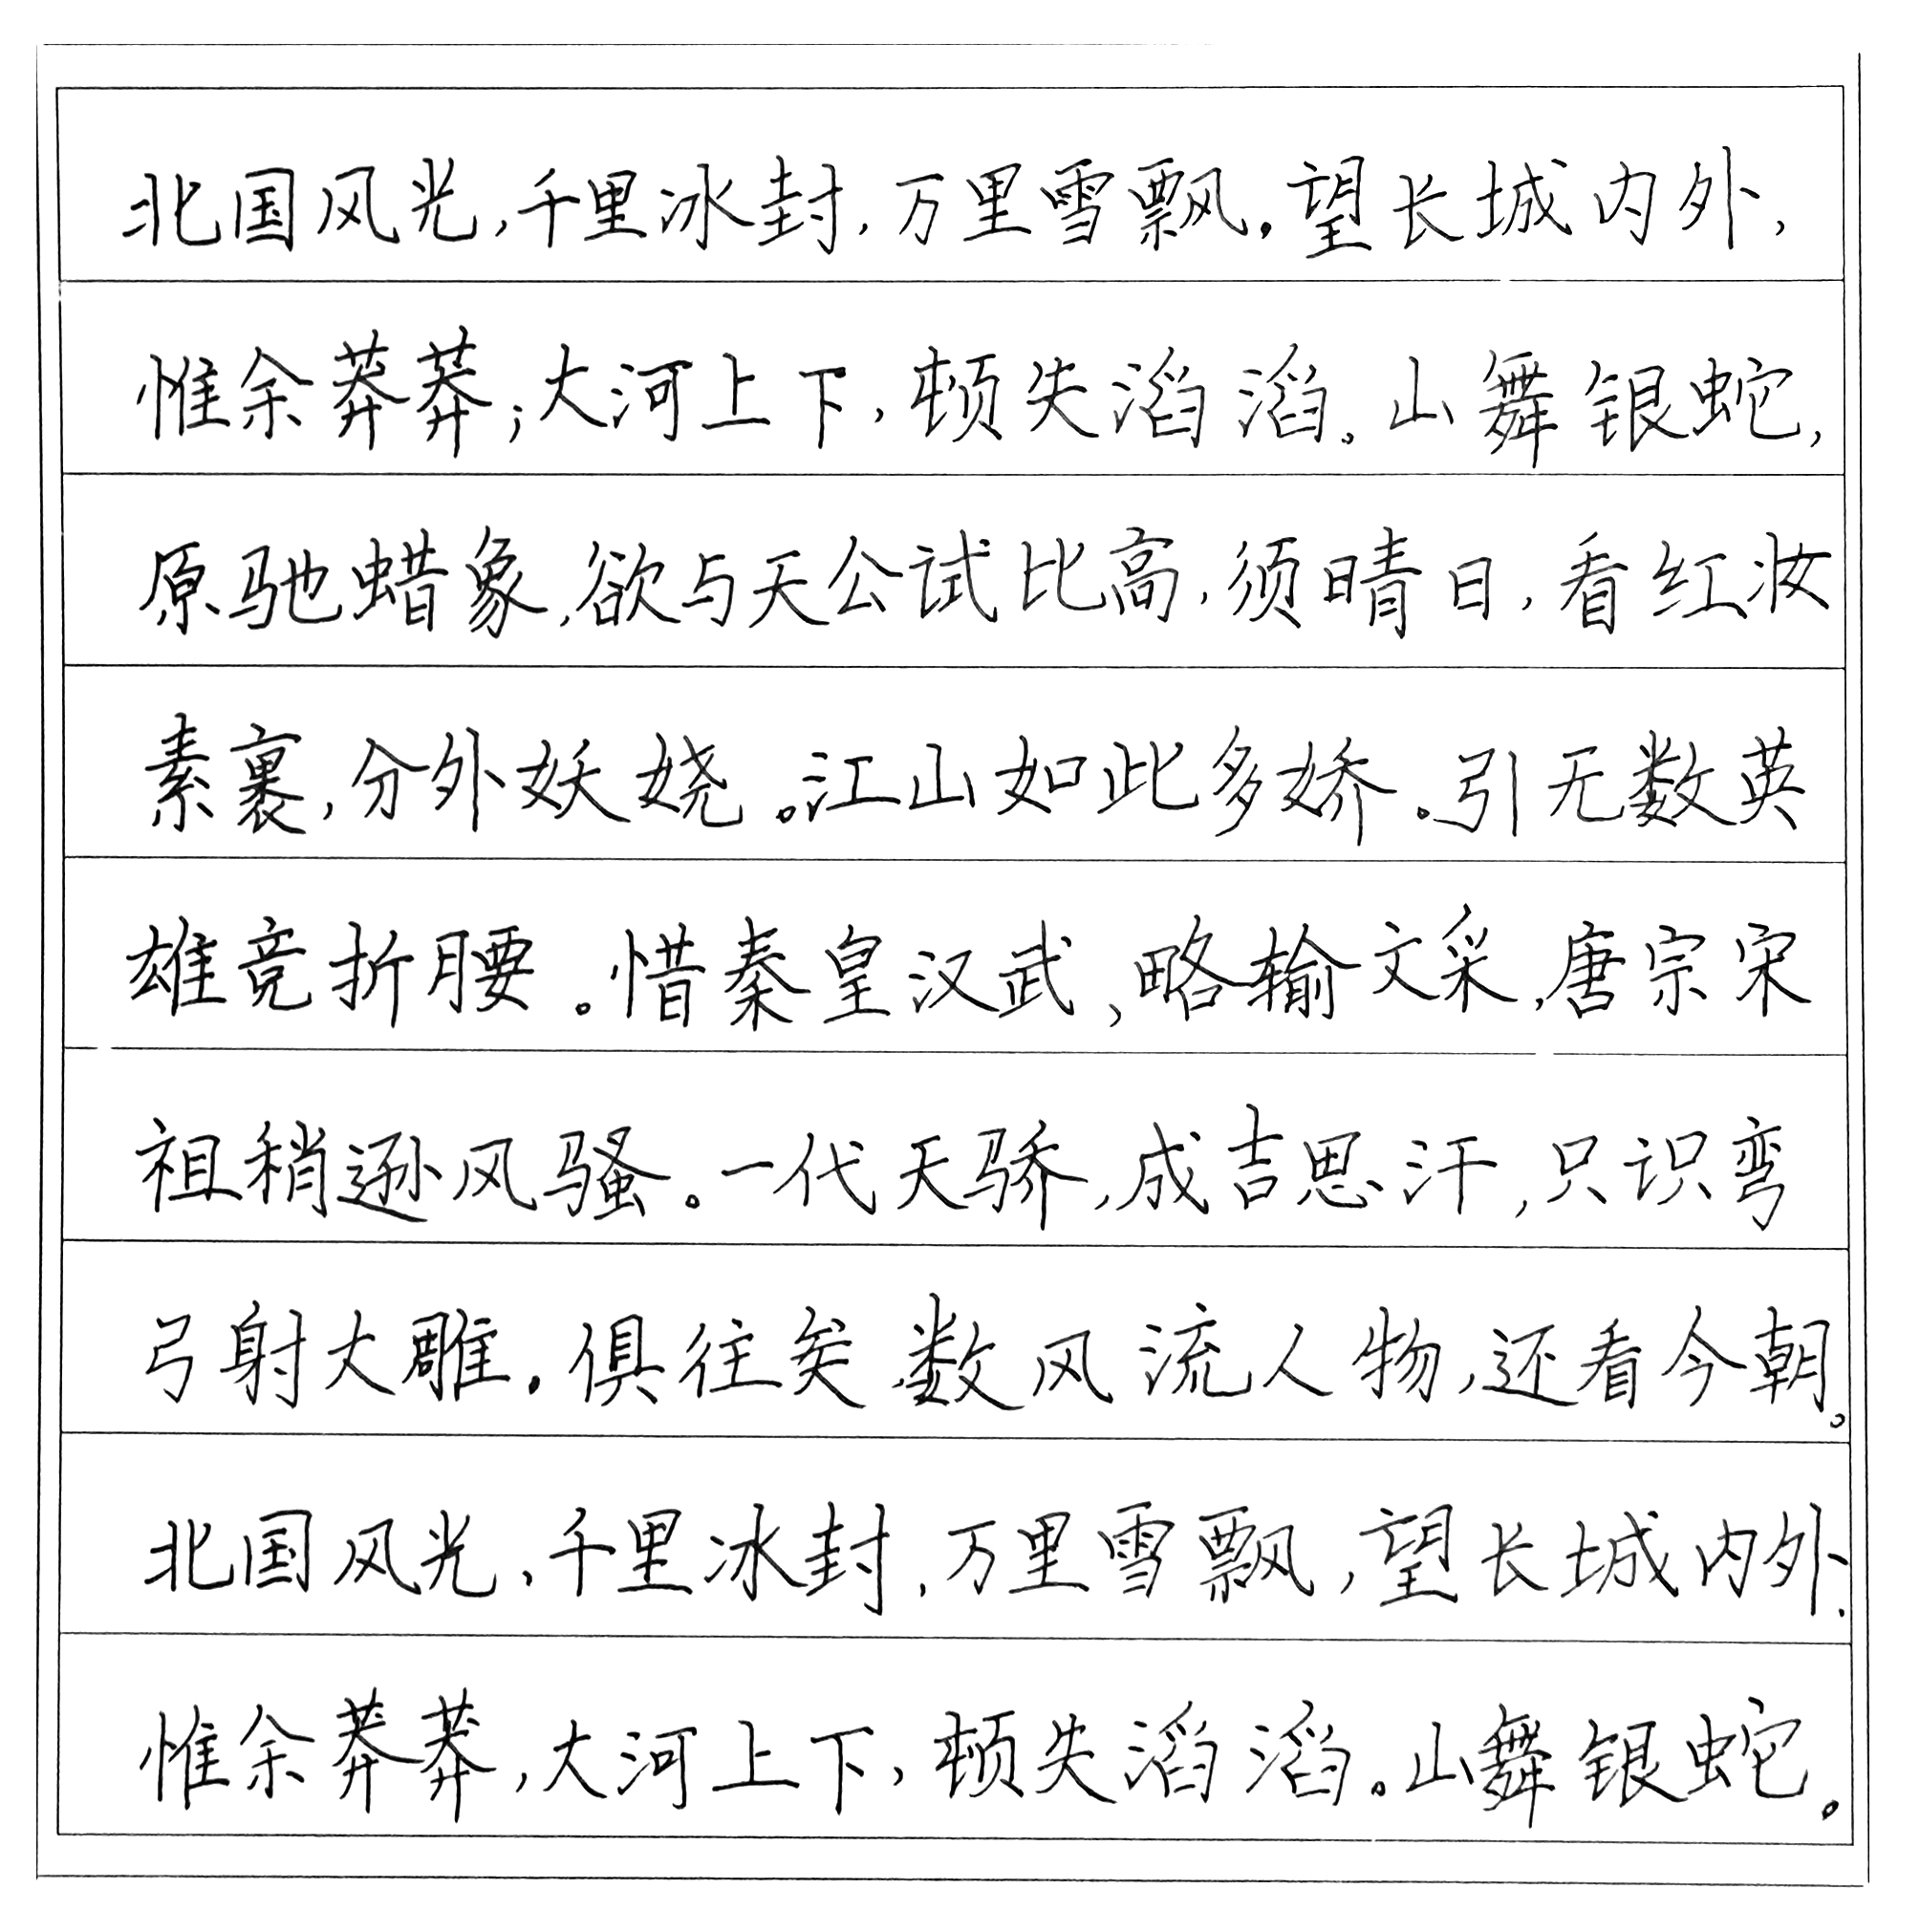 北国风光,千里冰封,万里雪飘.望长城内外,
惟余莽莽;大河上下,顿失滔滔。山舞银蛇,
原驰蜡象,欲与天公试比高,须晴日,看红妆
素裹,分外妖娆。江山如此多娇。引无数英
雄竞折腰。惜秦皇汉武,略输文采,唐宗宋
祖稍逊风骚。一代天骄,成吉思汗,只识弯
弓射大雕.俱往矣,数风流人物,还看今朝。
北国风光,千里冰封,万里雪飘,望长城内外.
惟余莽莽,大河上下,顿失滔滔。山舞银蛇。